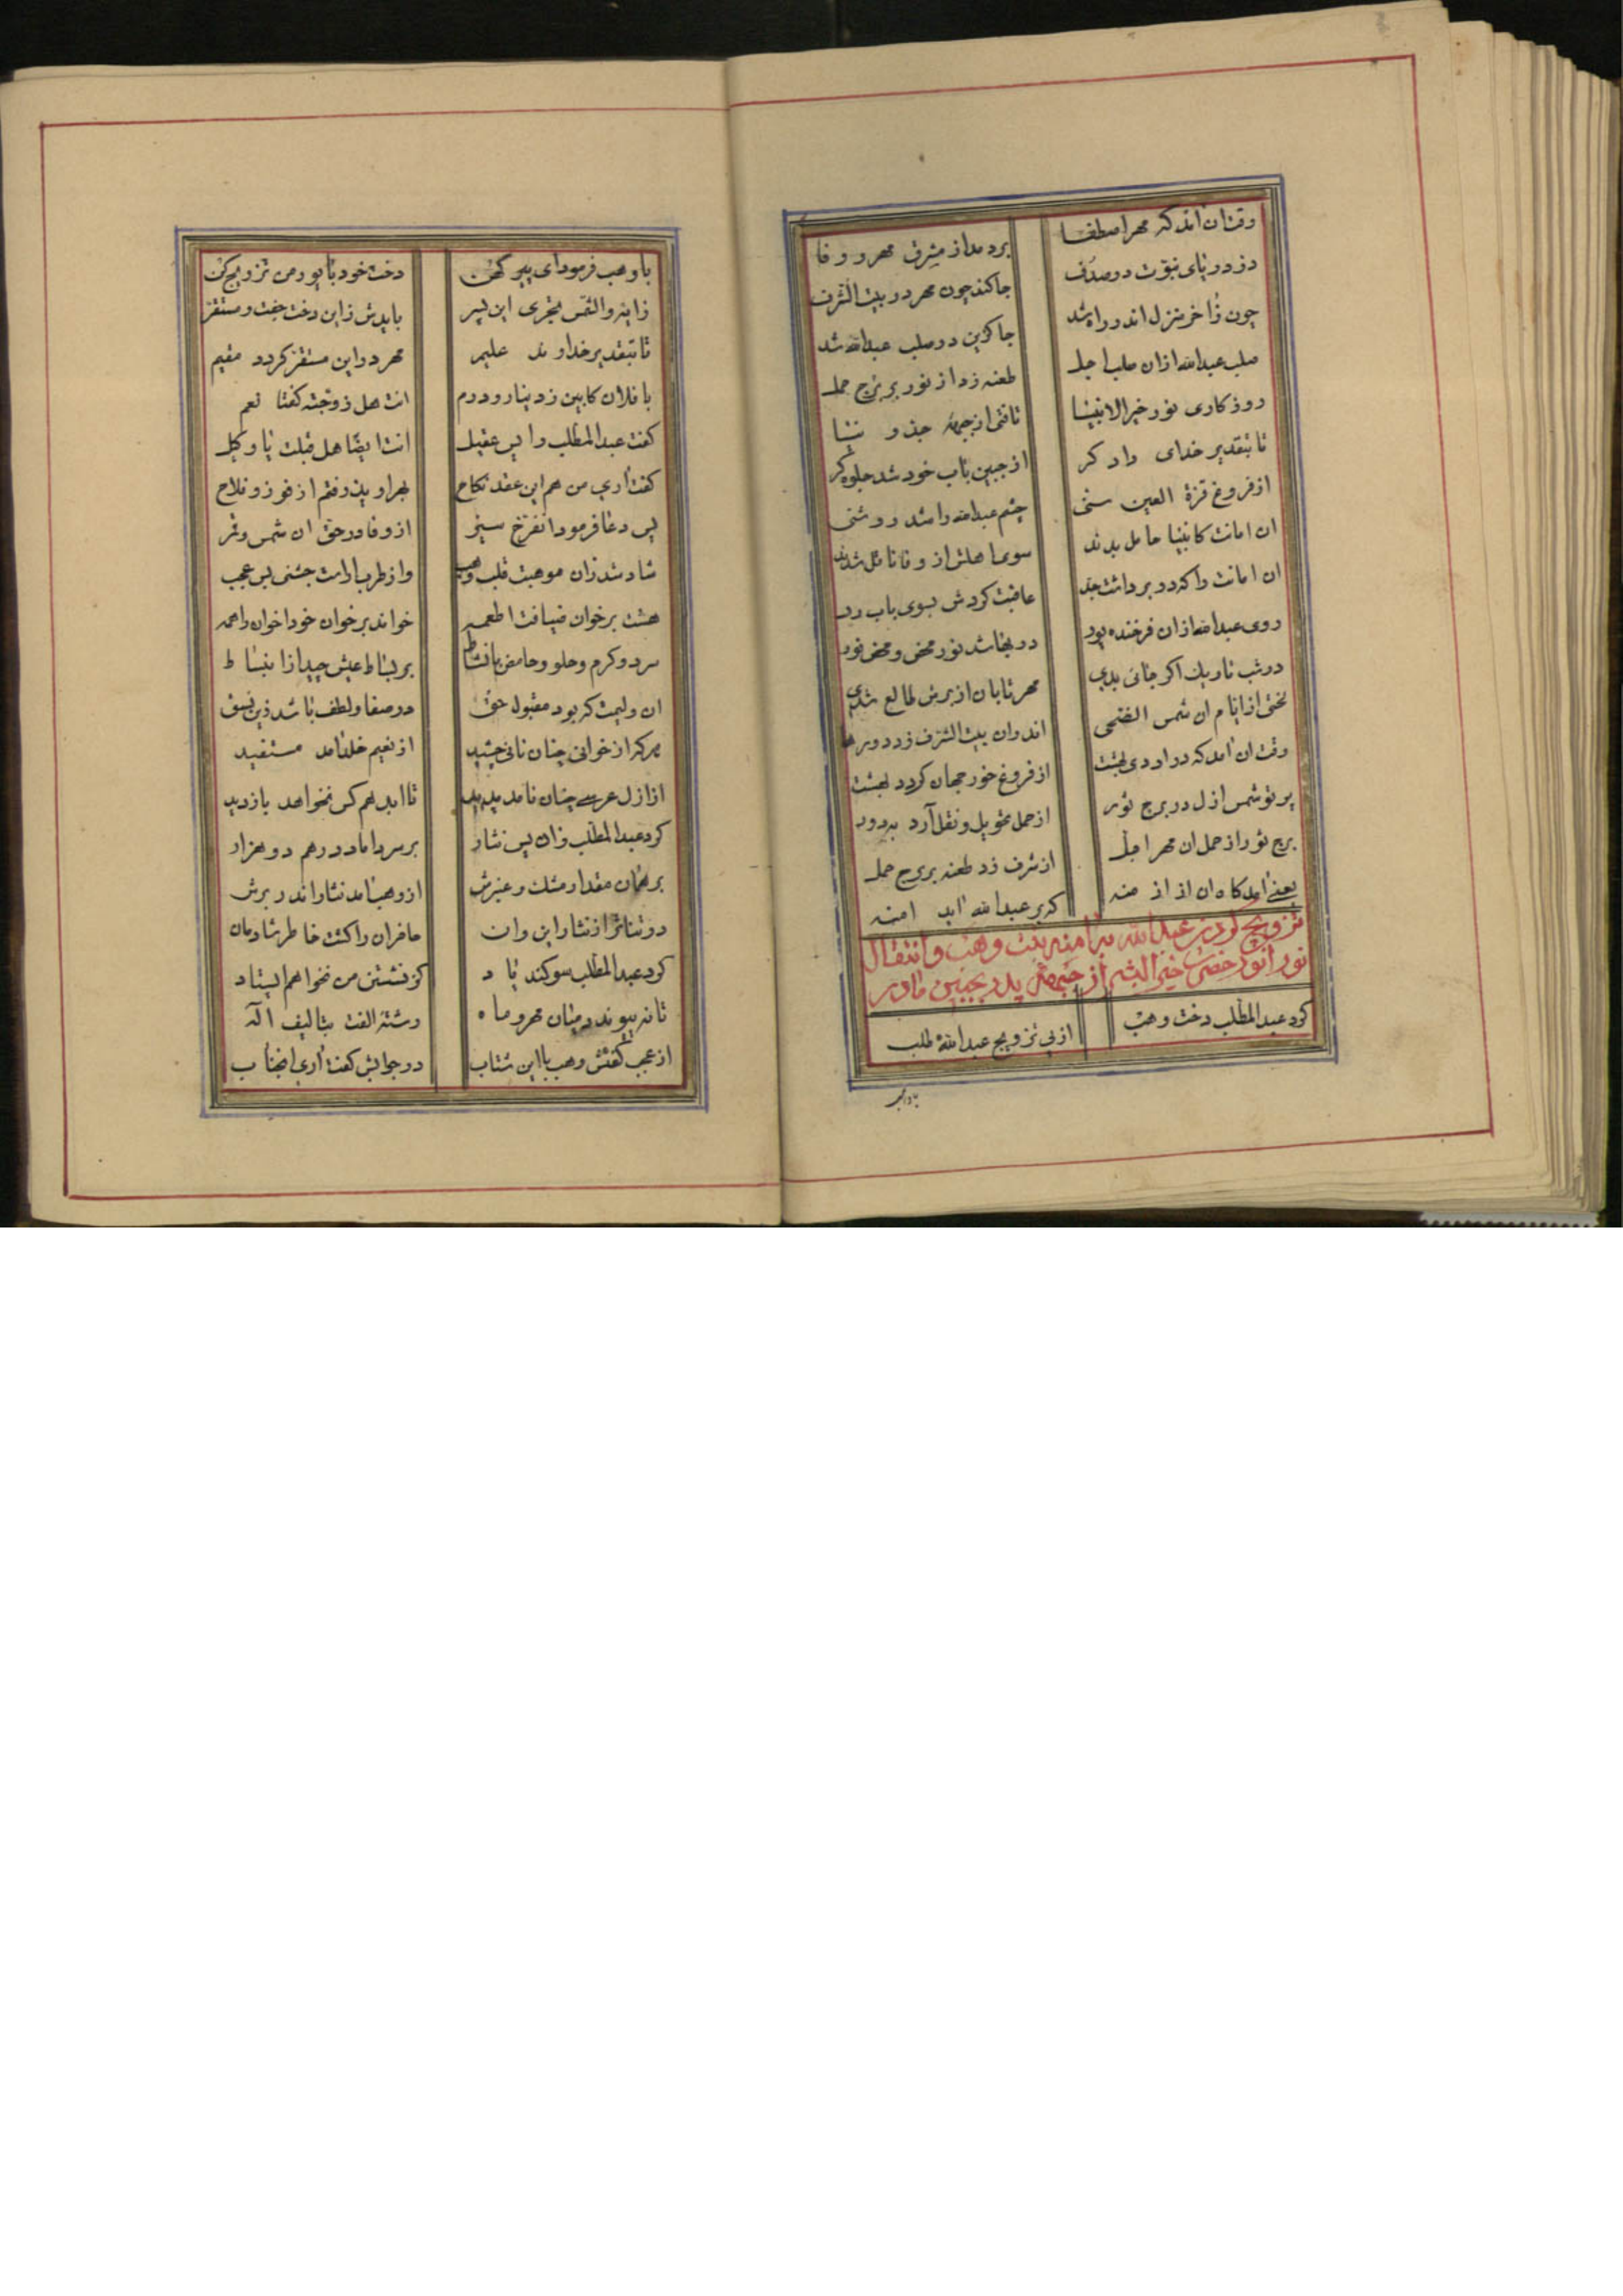 وقت ان امد که مهر اصطفا بردمد از مشرق مهر و وفا
در دریای نبوّت در صدف جا کند چون مهر در بیت الشرف
چون ز اخر منزل اندر راه شد جا گزین در صلب عبدالله شد
صلب عبدالله ازان صلب اجل طعنه زد از نور بر برج حمل
روزکاری نور خیر الانبیا تافتی از جبههٔ جدّ و نیا
تا بتقدیر خدای دادکر از جبین باب خود شد جلوه کر
از فروغ قرّة العین سنی چشم عبدالله را شد روشنی
ان امانت کانبیا حامل بدند سوی اهلش از وفا ناقل شدند
ان امانت را که در بر داشت جد عاقبت کردش بسوی باب رد
روی عبدالله ازان فرخنده پور در بها شد نور محض و محض نور
در شب تاریک اکر جائی بدی مهر تابان از برش طالع شدی
لختی از ایام ان شمس الضحی اندران بیت الشرف زد دور ها
وقت ان امد که در اردی بهشت از فروغ خور جهان کردد بهشت
پرتو شمس ازل در برج ثور از حمل تحویل و نقل آرد بدور
برج ثور از حمل ان مهر اجل از شرف زد طعنه بر برج حمل
یعنی امد کاه ان از ازمنه که بر عبدالله اید امنه
تزویج کردن عبدالله با امنه بنت وهب و انتقال
نور انور حضرت خیر البشر از جبههٔ پدر بجبین مادر
کرد عبدالمطّلب دخت وهب از پی تزویج عبدالله طلب
با وهب فرمود ای پیر کهن دخت خود با پور من تزویج کن
زایهٔ والشمس تجری این پسر بایدش زاین دخت جفت و مستقر
تا بتقدیر خداوند علیم مهر در این مستقر کردد مقیم
با فلان کابین ز دینار و درم انت هل زوّجته کفتا نعم
کفت عبدالمطّلب را پس عقیل انت ایضا هل قبلت یا وکیل
کفت اری من هم این عقد نکاح بهر او پذرفتم از فوز و فلاح
پس دعا فرمود ان فرّخ سیر از وفا در حق ان شمس و قمر
شاد شد زان موهبت قلب وهب واز طرب اراست جشنی بس عجب
هشت بر خوان ضیافت اطعمه خواند بر خوان خود اخوان را همه
سرد و کرم و حلو و حامض با نشاط بر بساط عیش چید از انبساط
ان ولیمت که بود مقبول حق در صفا و لطف باشد زین نسق
هر که از خوانی چنان نانی چشید از نعیم خلد امد مستفید
از ازل عرسی چنان نامد پدید تا ابد هم کس نخواهد باز دید
کرد عبدالمطّلب زان پس نثار بر سر داماد درهم دو هزار
بر همان مقدار مشک و عنبرش از وهب امد نثار اندر برش
در تناثر از نثار این و ان حاضران را کشت خاطر شادمان
کرد عبدالمطّلب سوکند یاد کز نشستن من نخواهم ایستاد
تا نه پیوند درمیان مهر و ماه رشتهٔ الفت بتالیف اله
از عجب کفتش وهب با این شتاب در جوابش کفت اری انجناب